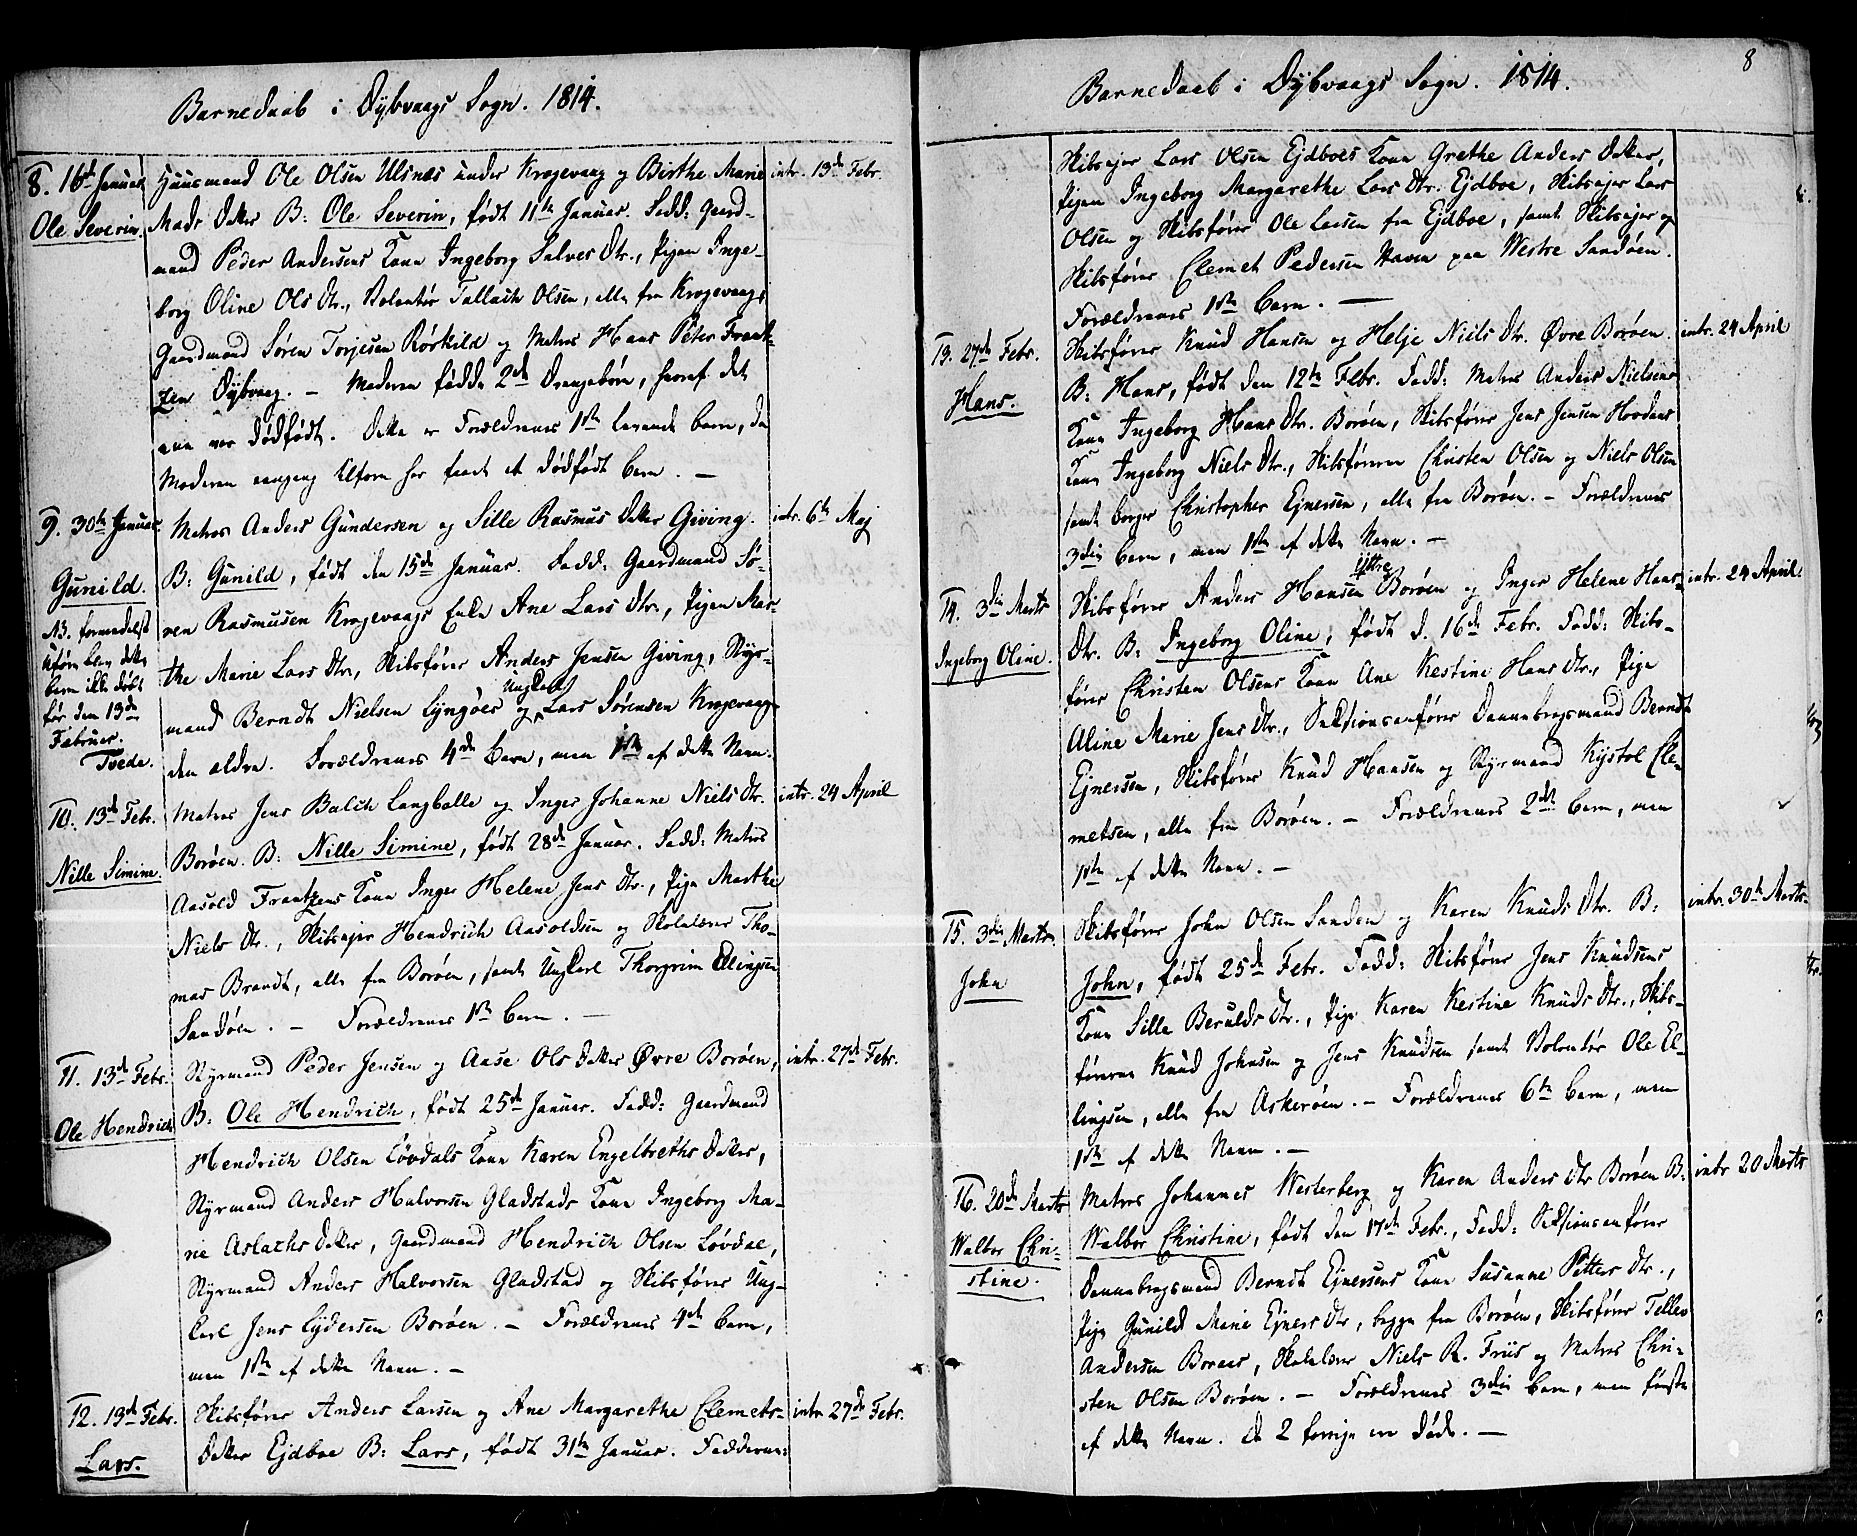 Barnedaab i Dybvaags Sogn. 1814.
8. 16de Januar
Ole Severin.
Huusmand Ole Olsen Ulsnæs under Krogevaag og Birthe Marie
Mads Datter B: Ole Severin, født 11te Januar. Fadd: Gaard-
mand Peder Andersens Kone Ingeborg Salves Dtr., Pigen Inge-
borg Oline Ols Dtr., Volontør Tallach Olsen, alle fra Krogevaag,
Gaardmand Søren Torjesen Rørkild og Matros Hans Peter Frant-
zen Dybvaag. — Moderen fødde 2de Drengebørn, hvoraf det
ene var dødfødt. Dette er Forældrenes 1ste levende Barn, da
Moderen engang tilforn har faaet et dødfødt Barn. —
intr. 13de Febr.
9. 30te Januar
Gunild.
NB. formedelst
Uføre blev dette
Barn ikke døbt
før den 13de
Februar.
Tvede.
Matros Anders Gundersen og Sille Rasmus Datter Giving.
B: Gunild, født den 15de Januar. Fadd: Gaardmand Sø-
ren Rasmusen Krogevaags Enke Ane Lars Dtr., Pigen Mar-
the Marie Lars Dtr, Skibsfører Anders Jensen Giving, Styr-
mand Berndt Nielsen Lyngøer og Ungkarl Lars Sørensen Krogevaag
den ældre. Forældrenes 4de Barn, men 1ste af dette Navn.
intr. 6te Maj
10. 13de Febr.
Nille Simine.
Matros Jens Balch Langballe og Inger Johanne Niels Dtr.
Borøen. B: Nille Simine, født 28de Januar. Fadd: Matros
Aasold Frantzens Kone Inger Helene Jens Dtr., Pige Marthe
Niels Dtr., Skibsejer Hendrich Aasoldsen og Skolelærer Tho-
mas Brandt, alle fra Borøen, samt Ungkarl Thorgrim Ellingsen
Sandøen. — Forældrenes 1ste Barn. —
intr. 24 April
11. 13de Febr.
Ole Hendrich
Styrmand Peder Jensen og Aase Ols Datter Øvre Borøen,
B: Ole Hendrich, født 25de Januar. Fadd: Gaardmand
Hendrich Olsen Løvdals Kone Karen Engelbreths Datter,
Styrmand Anders Halvorsen Gladstads Kone Ingeborg Ma-
rie Aslachs Datter, Gaardmand Hendrich Olsen Løvdal,
Styrmand Anders Halvorsen Gladstad og Skibsfører Ung-
karl Jens Lydersen Borøen. — Forældrenes 4de Barn,
men 1ste af dette Navn. —
intr. 27de Febr.
12. 13de Febr.
Lars.
Skibsfører Anders Larsen og Ane Margarethe Clemets-
Datter Ejdboe B: Lars, født 31te Januar. Fadderne:
intr 27de Febr.
8
Barnedaab i Dybvaags Sogn. 1814.
Skibsejer Lars Olsen Ejdboes Kone Grethe Anders Datter,
Pigen Ingeborg Margarethe Lars Dtr. Ejdboe, Skibsejer Lars
Olsen og Skibsfører Ole Larsen fra Ejdboe, samt Skibsejer og
Skibsfører Clemet Pedersen Haven paa Westre Sandøen.
Forældrenes 1ste Barn. —
13. 27de Febr.
Hans.
Skibsfører Knud Hansen og Helje Niels Dtr. Øvre Borøen.
B: Hans, født den 12te Febr. Fadd: Matros Anders Nielsens
Kone Ingeborg Hans Dtr. Borøen, Skibsfører Jens Jensen Hovdens
Kone Ingeborg Niels Dtr., Skibsførerne Christen Olsen og Niels Olsen
samt Borger Christopher Ejnersen, alle fra Borøen. — Forældrenes
3die Barn, men 1ste af dette Navn. —
intr. 24 April
14. 3die Marts
Ingeborg Oline.
Skibsfører Anders Hansen yttre Borøen og Inger Helene Hans-
Dtr. B: Ingeborg Oline, født d. 16de Febr. Fadd: Skibs-
fører Christen Olsens Kone Ane Kestine Hans Dtr., Pige
Aline Marie Jens Dtr., Sektionsanfører Dannebrogsmand Berndt
Ejnersen, Skibsfører Knud Hansen og Styrmand Kystol Cle-
metsen, alle fra Borøen. — Forældrenes 2det Barn, men
1ste af dette Navn. —
intr. 24 April.
15. 3die Marts.
John
Skibsfører John Olsen Sanden og Karen Knuds Dtr. B:
John, født 25de Febr. Fadd: Skibsfører Jens Knudsens
Kone Sille Berulds Dtr., Pige Karen Kestine Knuds Dtr., Skibs-
førerne Knud Johnsen og Jens Knudsen samt Volontør Ole El-
lingsen, alle fra Askerøen. — Forældrenes 6te Barn, men
1ste af dette Navn. —
intr. 30te Marts
16. 20de Marts
Walbor Chri-
stine.
Matros Johannes Westerberg og Karen Anders Dtr Borøen B:
Walbor Christine, født den 17de Febr., Fadd: Sektionsanfører
Dannebrogsmand Berndt Ejnersens Kone Susanne Petters Dtr.,
Pige Gunild Marie Ejners Dtr, begge fra Borøen, Skibsfører Tellev
Andersen Boraas, Skolelærer Niels R. Friis og Matros Chri-
sten Olsen Borøen. — Forældrenes 3die Barn, men første
af dette Navn. De 2 forrige ere døde. —
intr 20 Marts